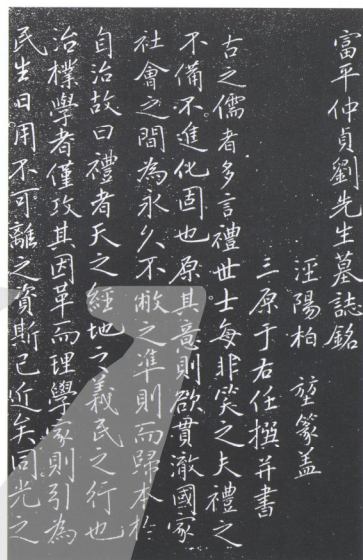 富平仲貞劉先生墓誌銘
涇陽柏堃篆蓋
三原于右任撰并書
古之儒者多言禮世士每非笑之夫禮之
不備不進化固也原其意則欲貫澈國家
社會之間為永久不敝之準則而歸本於
自治故曰禮者天之經地之義民之行也
治樸學者僅攷其因革而理學家則引為
民生日用不可離之資斯已近矣同光之